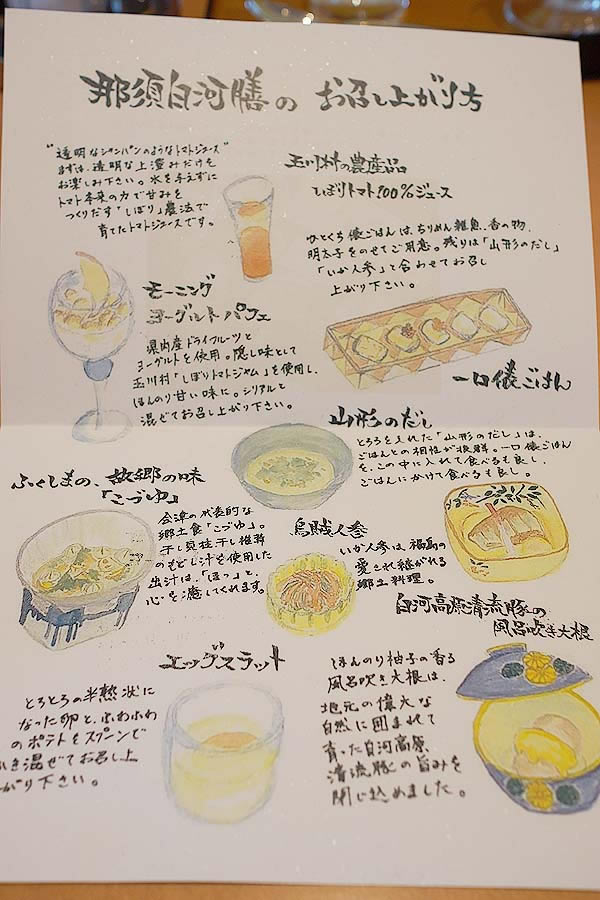 那須白河膳の お召し上がり方
"透明なシャンパンのようなトマトジュース"
まずは、透明な上澄みだけを
お楽しみ下さい。水を与えずに
トマト本来の力で甘みを
つくりだす「しぼり」農法で
育てたトマトジュースです。
玉川村の農産品
しぼりトマト100%ジュース
ひとくち俵ごはんは、ちりめん雑魚、香の物、
明太子をのせてご用意。残りは「山形のだし」
「いか人参」と合わせてお召し
上がり下さい。
モーニング
ヨーグルトパフェ
県内産ドライフルーツと
ヨーグルトを使用。隠し味として
玉川村「しぼりトマトジャム」を使用し、
ほんのり甘い味に。シリアルと
混ぜてお召し上がり下さい。
一口俵ごはん
山形のだし
とろろを入れた「山形のだし」は、
ごはんとの相性が抜群。一口俵ごはん
を、この中に入れて食べるも良し、
ごはんにかけて食べるも良し。
ふくしまの、故郷の味
「こづゆ」
会津の代表的な
郷土食「こづゆ」。
干し貝柱干し椎茸
のもどし汁を使用した
出汁は、「ほっ」と、
心を癒してくれます。
烏賊人参
いか人参は、福島の
愛され継がれる
郷土料理。
白河高原清流豚の
風呂吹き大根
エッグスラット
とろとろの半熟状に
なった卵と、ふわふわ
のポテトをスプーンで
かき混ぜてお召し上
がり下さい。
ほんのり柚子の香る
風呂吹き大根は、
地元の偉大な
自然に囲まれて
育った白河高原
清流豚の旨みを
閉じ込めました。